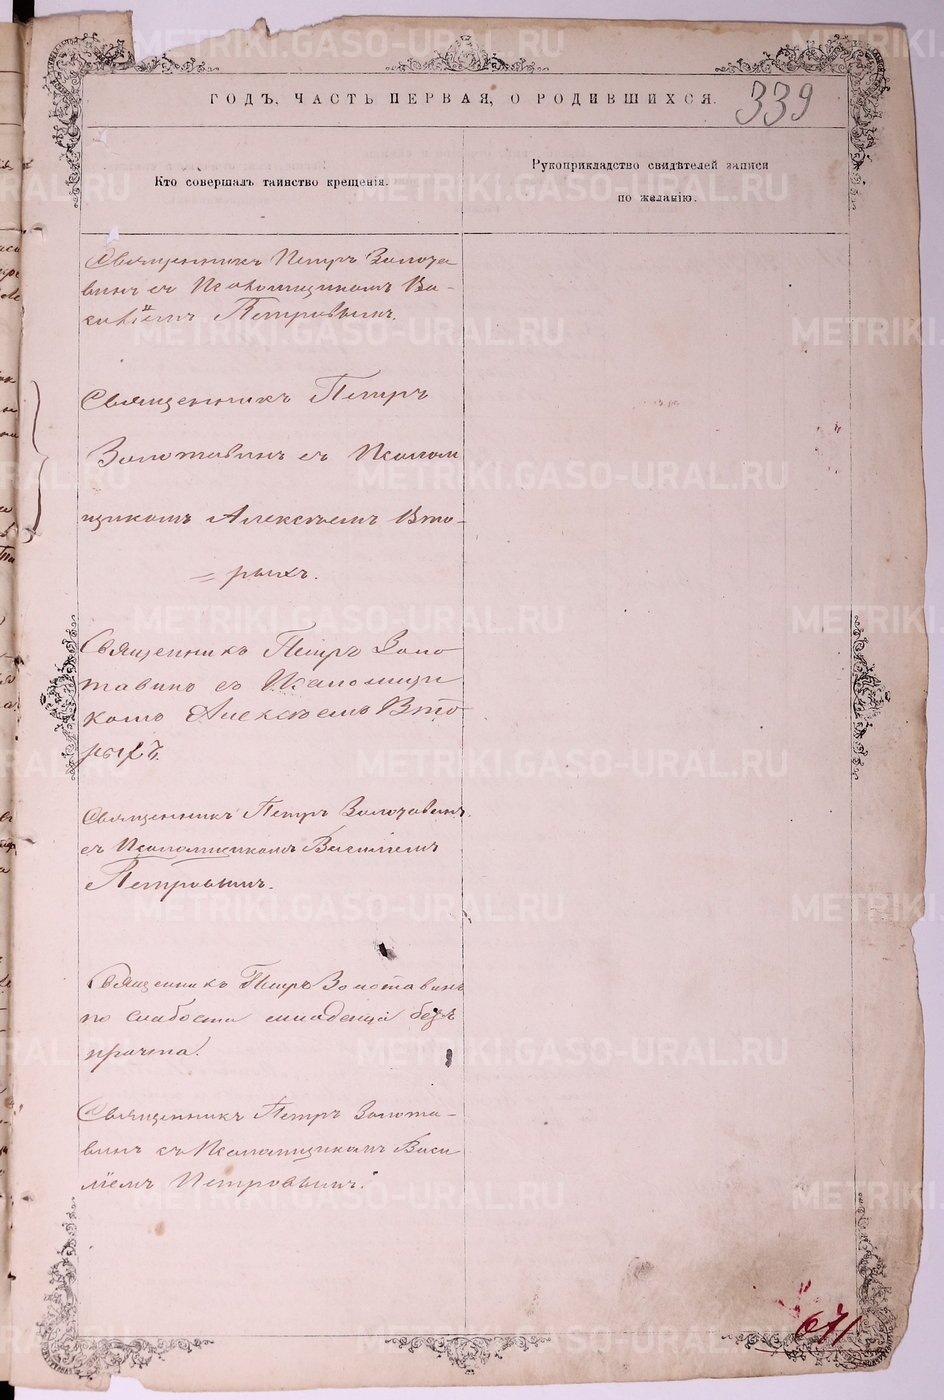 ГОДЪ, ЧАСТЬ ПЕРВАЯ, О РОДИВШИХСЯ.
339
Кто совершалъ таинство крещенія.
Рукоприкладство свидѣтелей записи
по желанію.
Священникъ Петръ Золота
винъ съ Псаломщикомъ Ва-
силіемъ Петровымъ.
Священникъ Петръ
Золотавинъ съ Псалом
щикомъ Алексѣемъ Вто-
= рыхъ.
Священникъ Петръ Золо
тавинъ съ Псаломщи
комъ Алексѣемъ Вто
рыхъ.
Священникъ Петръ Золотавинъ
съ Псаломщикомъ Василіемъ
Петровымъ.
Священникъ Петръ Золотавинъ
по слабости младенца безъ
причта.
Священникъ Петръ Золота-
винъ съ Псаломщикомъ Васи
ліемъ Петровымъ.
METRIKI.GASO-URAL.RU